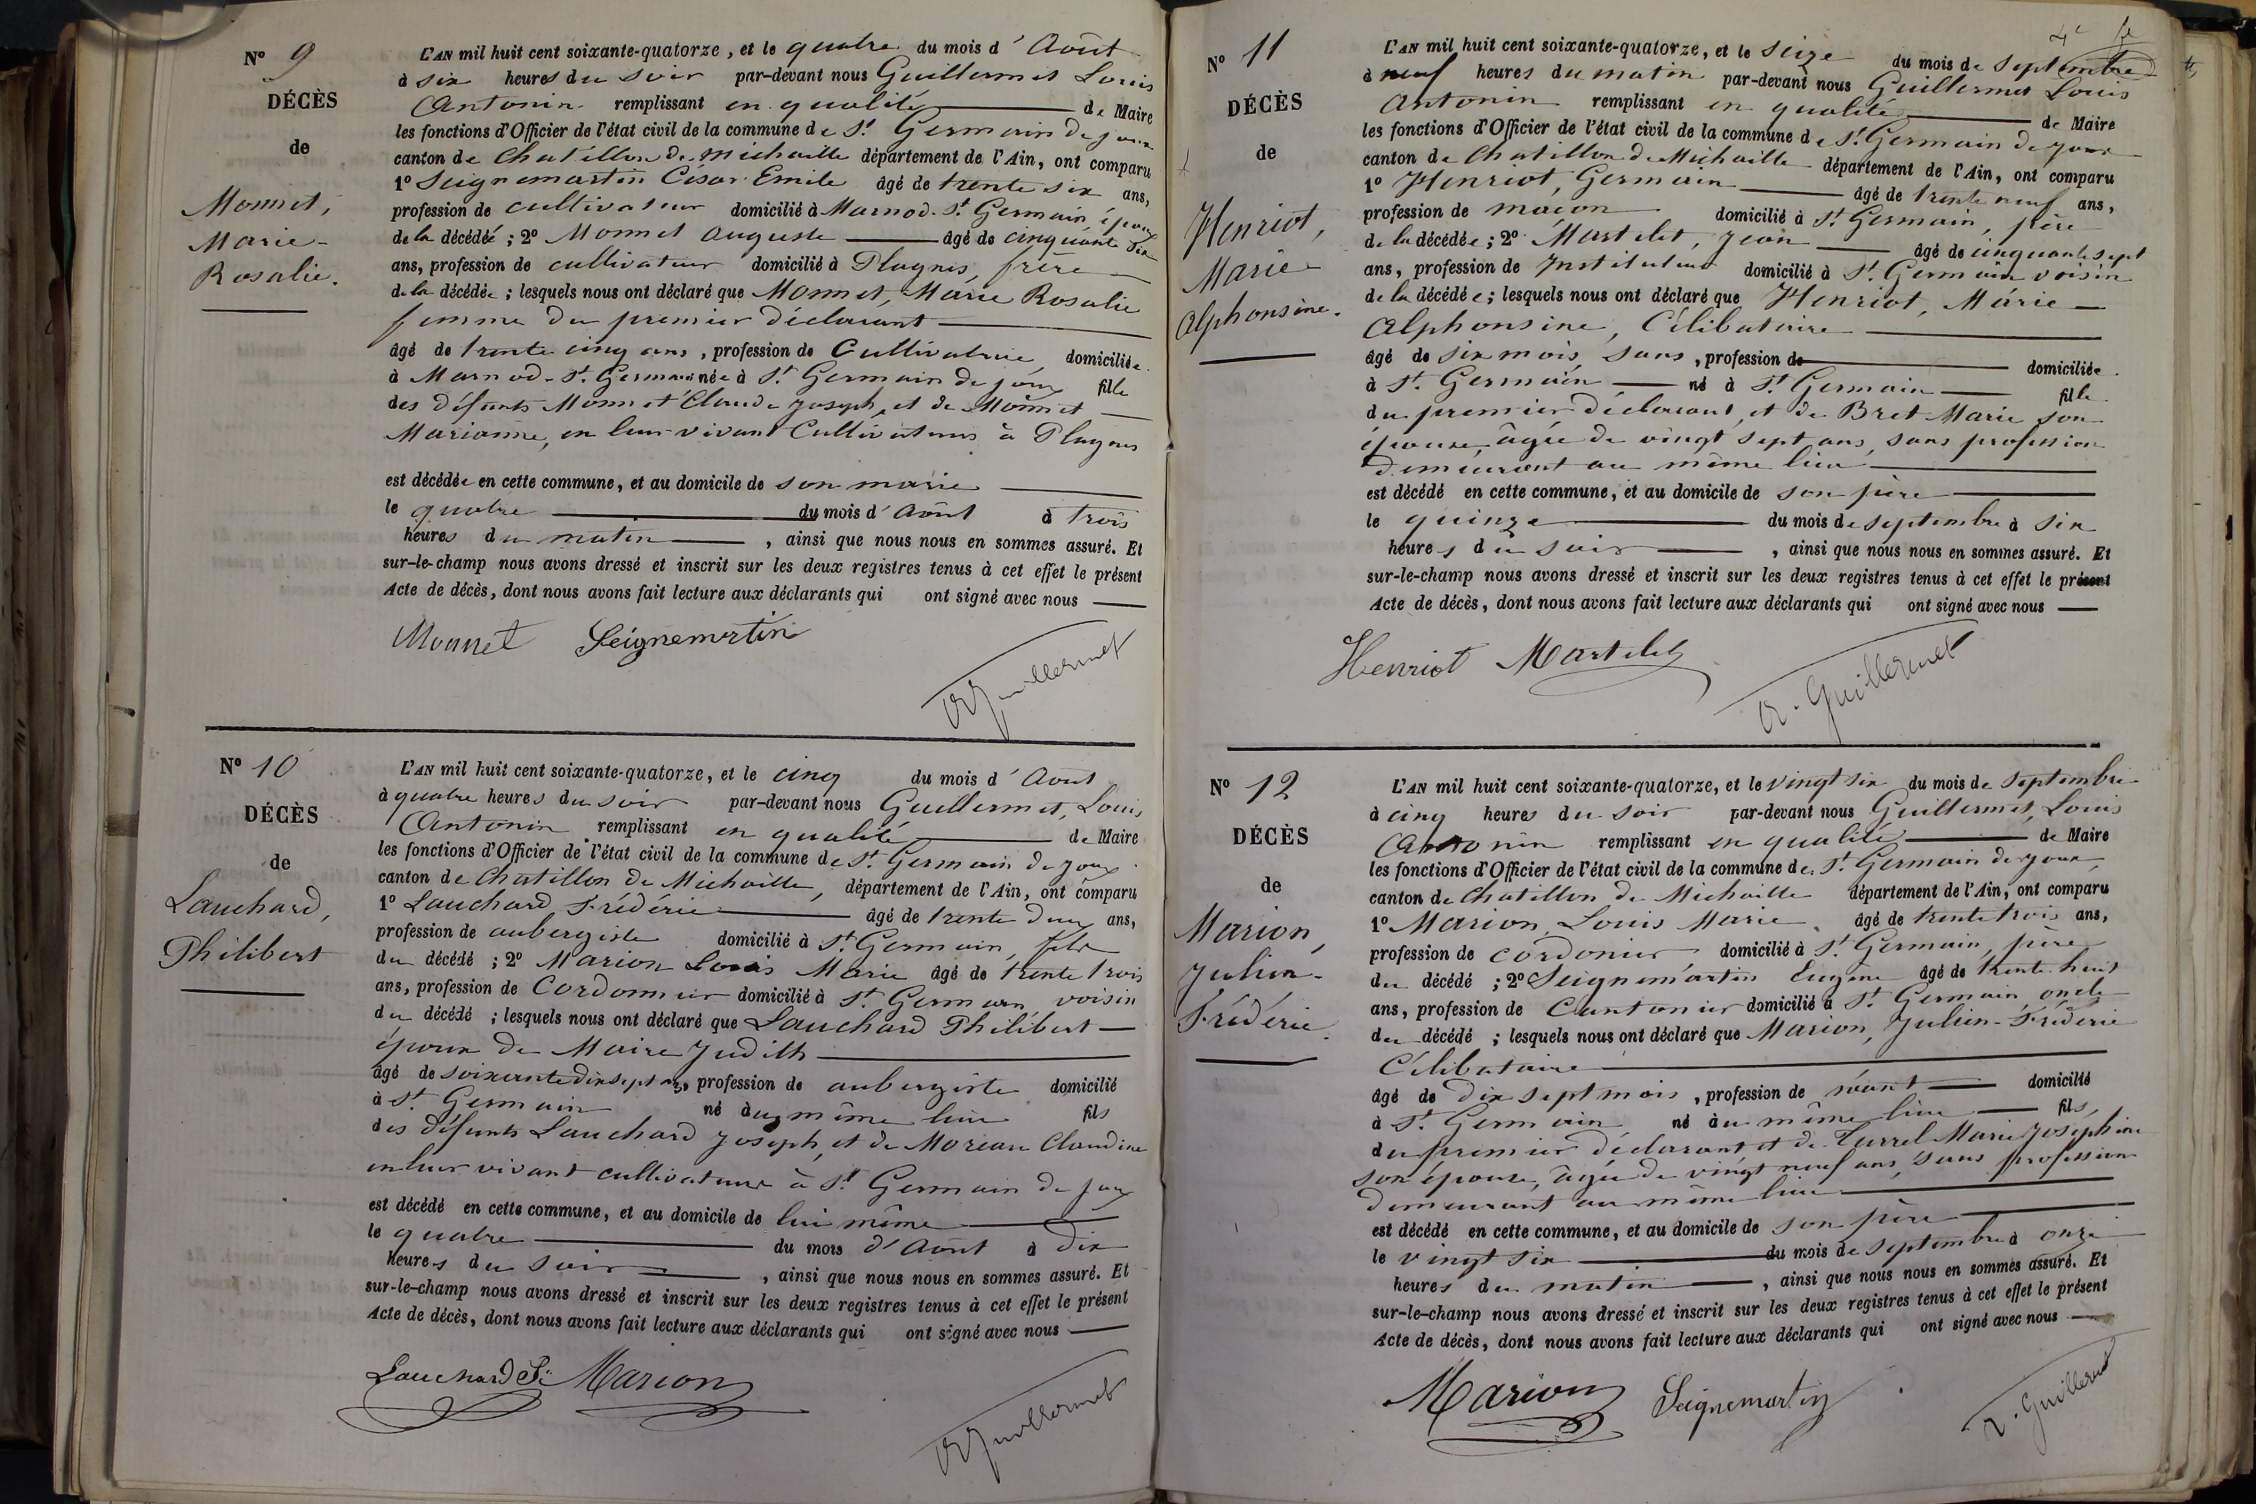 N° 9
DÉCÈS
de
Monnet,
Marie-
Rosalie.
L'AN mil huit cent soixante-quatorze, et le quatre du mois d'Août
à six heures du soir par-devant nous Guillermet Louis
Antonin remplissant en qualité de Maire
les fonctions d'Officier de l'état civil de la commune de St Germain de joux
canton de Chatillon de Michaille département de l'Ain, ont comparu
1° Seignemartin César Emile âgé de trente six ans,
profession de cultivateur domicilié à Marnod-St Germain, époux
de la décédée ; 2° Monnet Auguste âgé de cinquante six
ans, profession de cultivateur domicilié à Plagnes, frère
de la décédée ; lesquels nous ont déclaré que Monnet, Marie Rosalie
femme du premier déclarant
âgé de trente cinq ans, profession de Cultivatrice, domiciliée
à Marnod-St Germain née à St Germain de joux fille
des défunts Monnet Claude joseph, et de Monnet
Marianne, en leur vivant Cultivateurs à Plagnes
est décédée en cette commune, et au domicile de son marie
le quatre du mois d'Août à trois
heures du matin, ainsi que nous nous en sommes assuré. Et
sur-le-champ nous avons dressé et inscrit sur les deux registres tenus à cet effet le présent
Acte de décès, dont nous avons fait lecture aux déclarants qui ont signé avec nous
Monnet Seignemartin
A Guillermet
N° 10
DÉCÈS
de
Lauchard,
Philibert
L'AN mil huit cent soixante-quatorze, et le cinq du mois d'Août
à quatre heures du soir par-devant nous Guillermet, Louis
Antonin remplissant en qualité de Maire
les fonctions d'Officier de l'état civil de la commune de St Germain de joux
canton de Chatillon de Michaille, département de l'Ain, ont comparu
1° Lauchard Frédéric âgé de trente deux ans,
profession de aubergiste domicilié à St Germain, fils
du décédé ; 2° Marion Louis Marie âgé de trente trois
ans, profession de Cordonnier domicilié à St Germain voisin
du décédé ; lesquels nous ont déclaré que Lauchard Philibert
époux de Maire Judith
âgé de soixante dix sept ans, profession de aubergiste domicilié
à St Germain né au même lieu fils
des défunts Lauchard Joseph, et de Moreau Claudine
en leur vivant cultivateurs à St Germain de joux
est décédé en cette commune, et au domicile de lui même
le quatre du mois d'Août à dix
heures du soir, ainsi que nous nous en sommes assuré. Et
sur-le-champ nous avons dressé et inscrit sur les deux registres tenus à cet effet le présent
Acte de décès, dont nous avons fait lecture aux déclarants qui ont signé avec nous
Lauchard Marion
A Guillermet
N° 11
DÉCÈS
de
Henriot,
Marie-
Alphonsine.
L'AN mil huit cent soixante-quatorze, et le seize du mois de Septembre
à neuf heures du matin par-devant nous Guillermet Louis
Antonin remplissant en qualité de Maire
les fonctions d'Officier de l'état civil de la commune de St Germain de joux
canton de Chatillon de Michaille département de l'Ain, ont comparu
1° Henriot, Germain âgé de trente neuf ans,
profession de maçon domicilié à St Germain, père
de la décédée ; 2° Martelet, Jean âgé de cinquante sept
ans, profession de Instituteur domicilié à St Germain voisin
de la décédée ; lesquels nous ont déclaré que Henriot, Marie
Alphonsine, Célibataire
âgé de six mois, sans, profession de domiciliée
à St Germain né à St Germain fille
du premier déclarant, et de Bret Marie son
épouse, âgée de vingt sept ans, sans profession
demeurant au même lieu
est décédé en cette commune, et au domicile de son père
le quinze du mois de septembre à six
heures du soir, ainsi que nous nous en sommes assuré. Et
sur-le-champ nous avons dressé et inscrit sur les deux registres tenus à cet effet le présent
Acte de décès, dont nous avons fait lecture aux déclarants qui ont signé avec nous
Henriot Martelet
A. Guillermet
N° 12
DÉCÈS
de
Marion,
Julien-
Frédéric.
L'AN mil huit cent soixante-quatorze, et le vingt six du mois de Septembre
à cinq heures du soir par-devant nous Guillermet, Louis
Antonin remplissant en qualité de Maire
les fonctions d'Officier de l'état civil de la commune de St Germain de joux
canton de Chatillon de Michaille département de l'Ain, ont comparu
1° Marion, Louis Marie âgé de trente trois ans,
profession de cordonier domicilié à St Germain, père
du décédé ; 2° Seignemartin Eugène âgé de trente huit
ans, profession de Cantonier domicilié à St Germain, oncle
du décédé ; lesquels nous ont déclaré que Marion, Julien-Frédéric
Célibataire
âgé de dix sept mois, profession de néant domicilié
à St Germain né au même lieu fils,
du premier déclarant et de Turrel Marie Josephine
son épouse, âgée de vingt neuf ans, sans profession
demeurant au même lieu
est décédé en cette commune, et au domicile de son père
le vingt six du mois de septembre à onze
heures du matin, ainsi que nous nous en sommes assuré. Et
sur-le-champ nous avons dressé et inscrit sur les deux registres tenus à cet effet le présent
Acte de décès, dont nous avons fait lecture aux déclarants qui ont signé avec nous
Marion Seignemartin
A. Guillermet